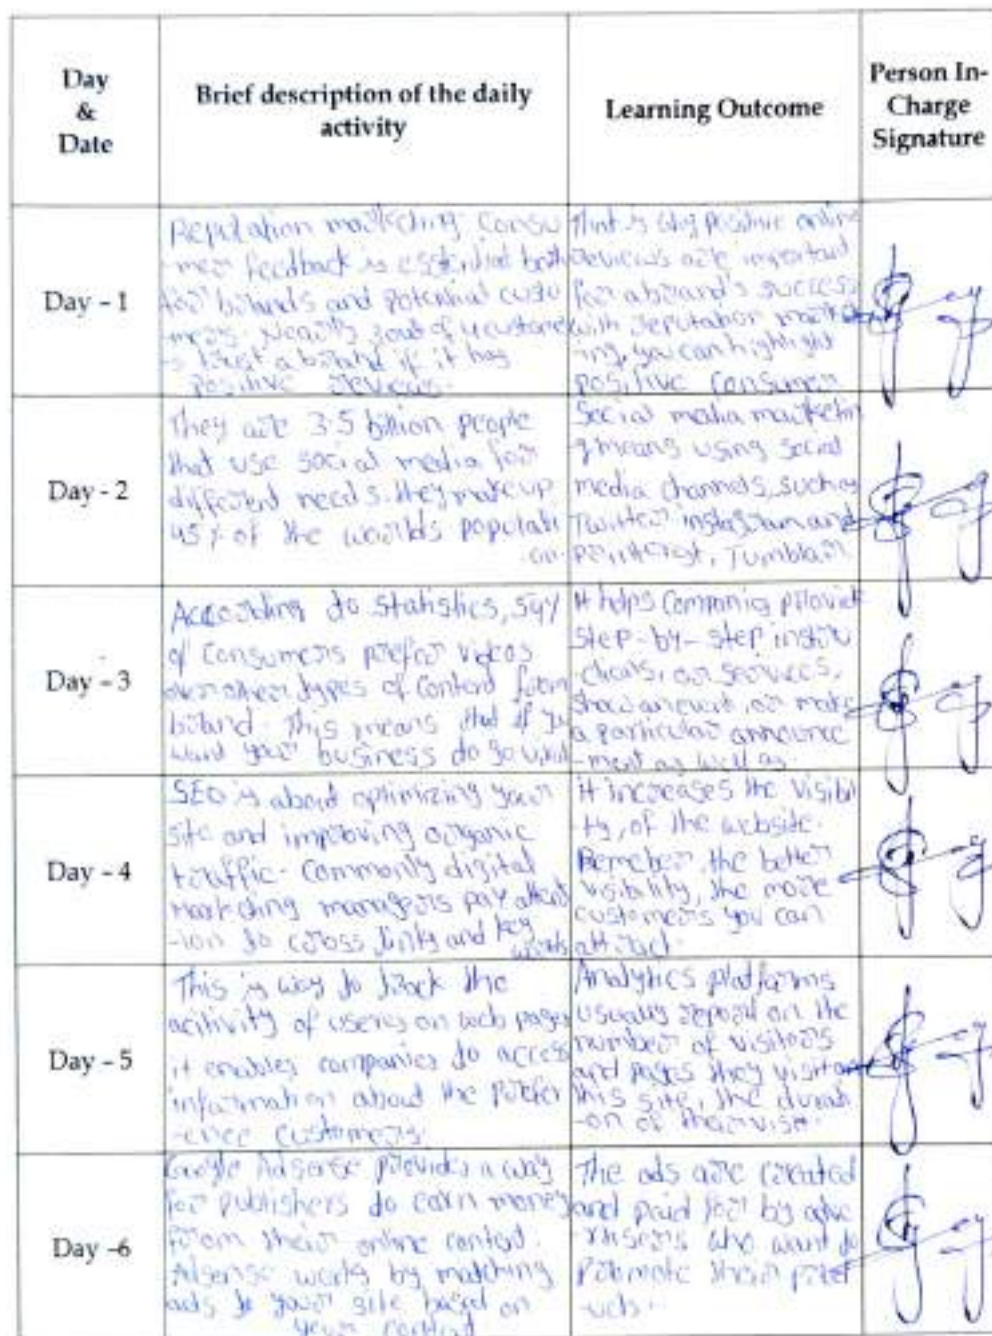 Day
&
Date
Brief description of the daily
activity
Learning Outcome
Person In-
Charge
Signature
Day - 1
Reputation marketing consu
-mer feedback is essential both
for brands and potential custo
-mers. Nearly 3 out of 4 custome
-s trust a brand if it has
positive reviews.
That is why positive online
reviews are important
for a brand's success
with reputation market
-ing, you can highlight
positive consumer
Day - 2
They are 3.5 billion people
that use social media for
different needs. they make up
45% of the worlds populati
-on
Social media marketin
g means using social
media channels, such as
Twitter instagram and
Tumblair
Day - 3
According to statistics, 54%
of consumers prefer videos
over other types of content from
brand. This means that if you
want your business to go
It helps companies provide
step-by-step instru
-ctions, or services,
or make
a particular announce
-ment as well as.
Day - 4
SEO is about optimizing your
site and improving organic
traffic. Commonly digital
marketing managers pay attent
-ion to cross links and key
words
it increases the visibili
-ty, of the website.
Remeber, the better
visibility, the more
customers you can
attract.
Day - 5
This is way to track the
acitivity of users on web pages
it enables companies to access
information about the prefer
-ence customers.
Analytics platforms
usually report on the
number of visitors
and pages they visit on
this site, the durati
-on of their visit.
Day -6
Google Adsense provides a way
for publishers to earn money
from their online content.
Adsense works by matching
ads to your site based on
your content
The ads are created
and paid for by adve
-rtisers who want to
promote their prod
-ucts.